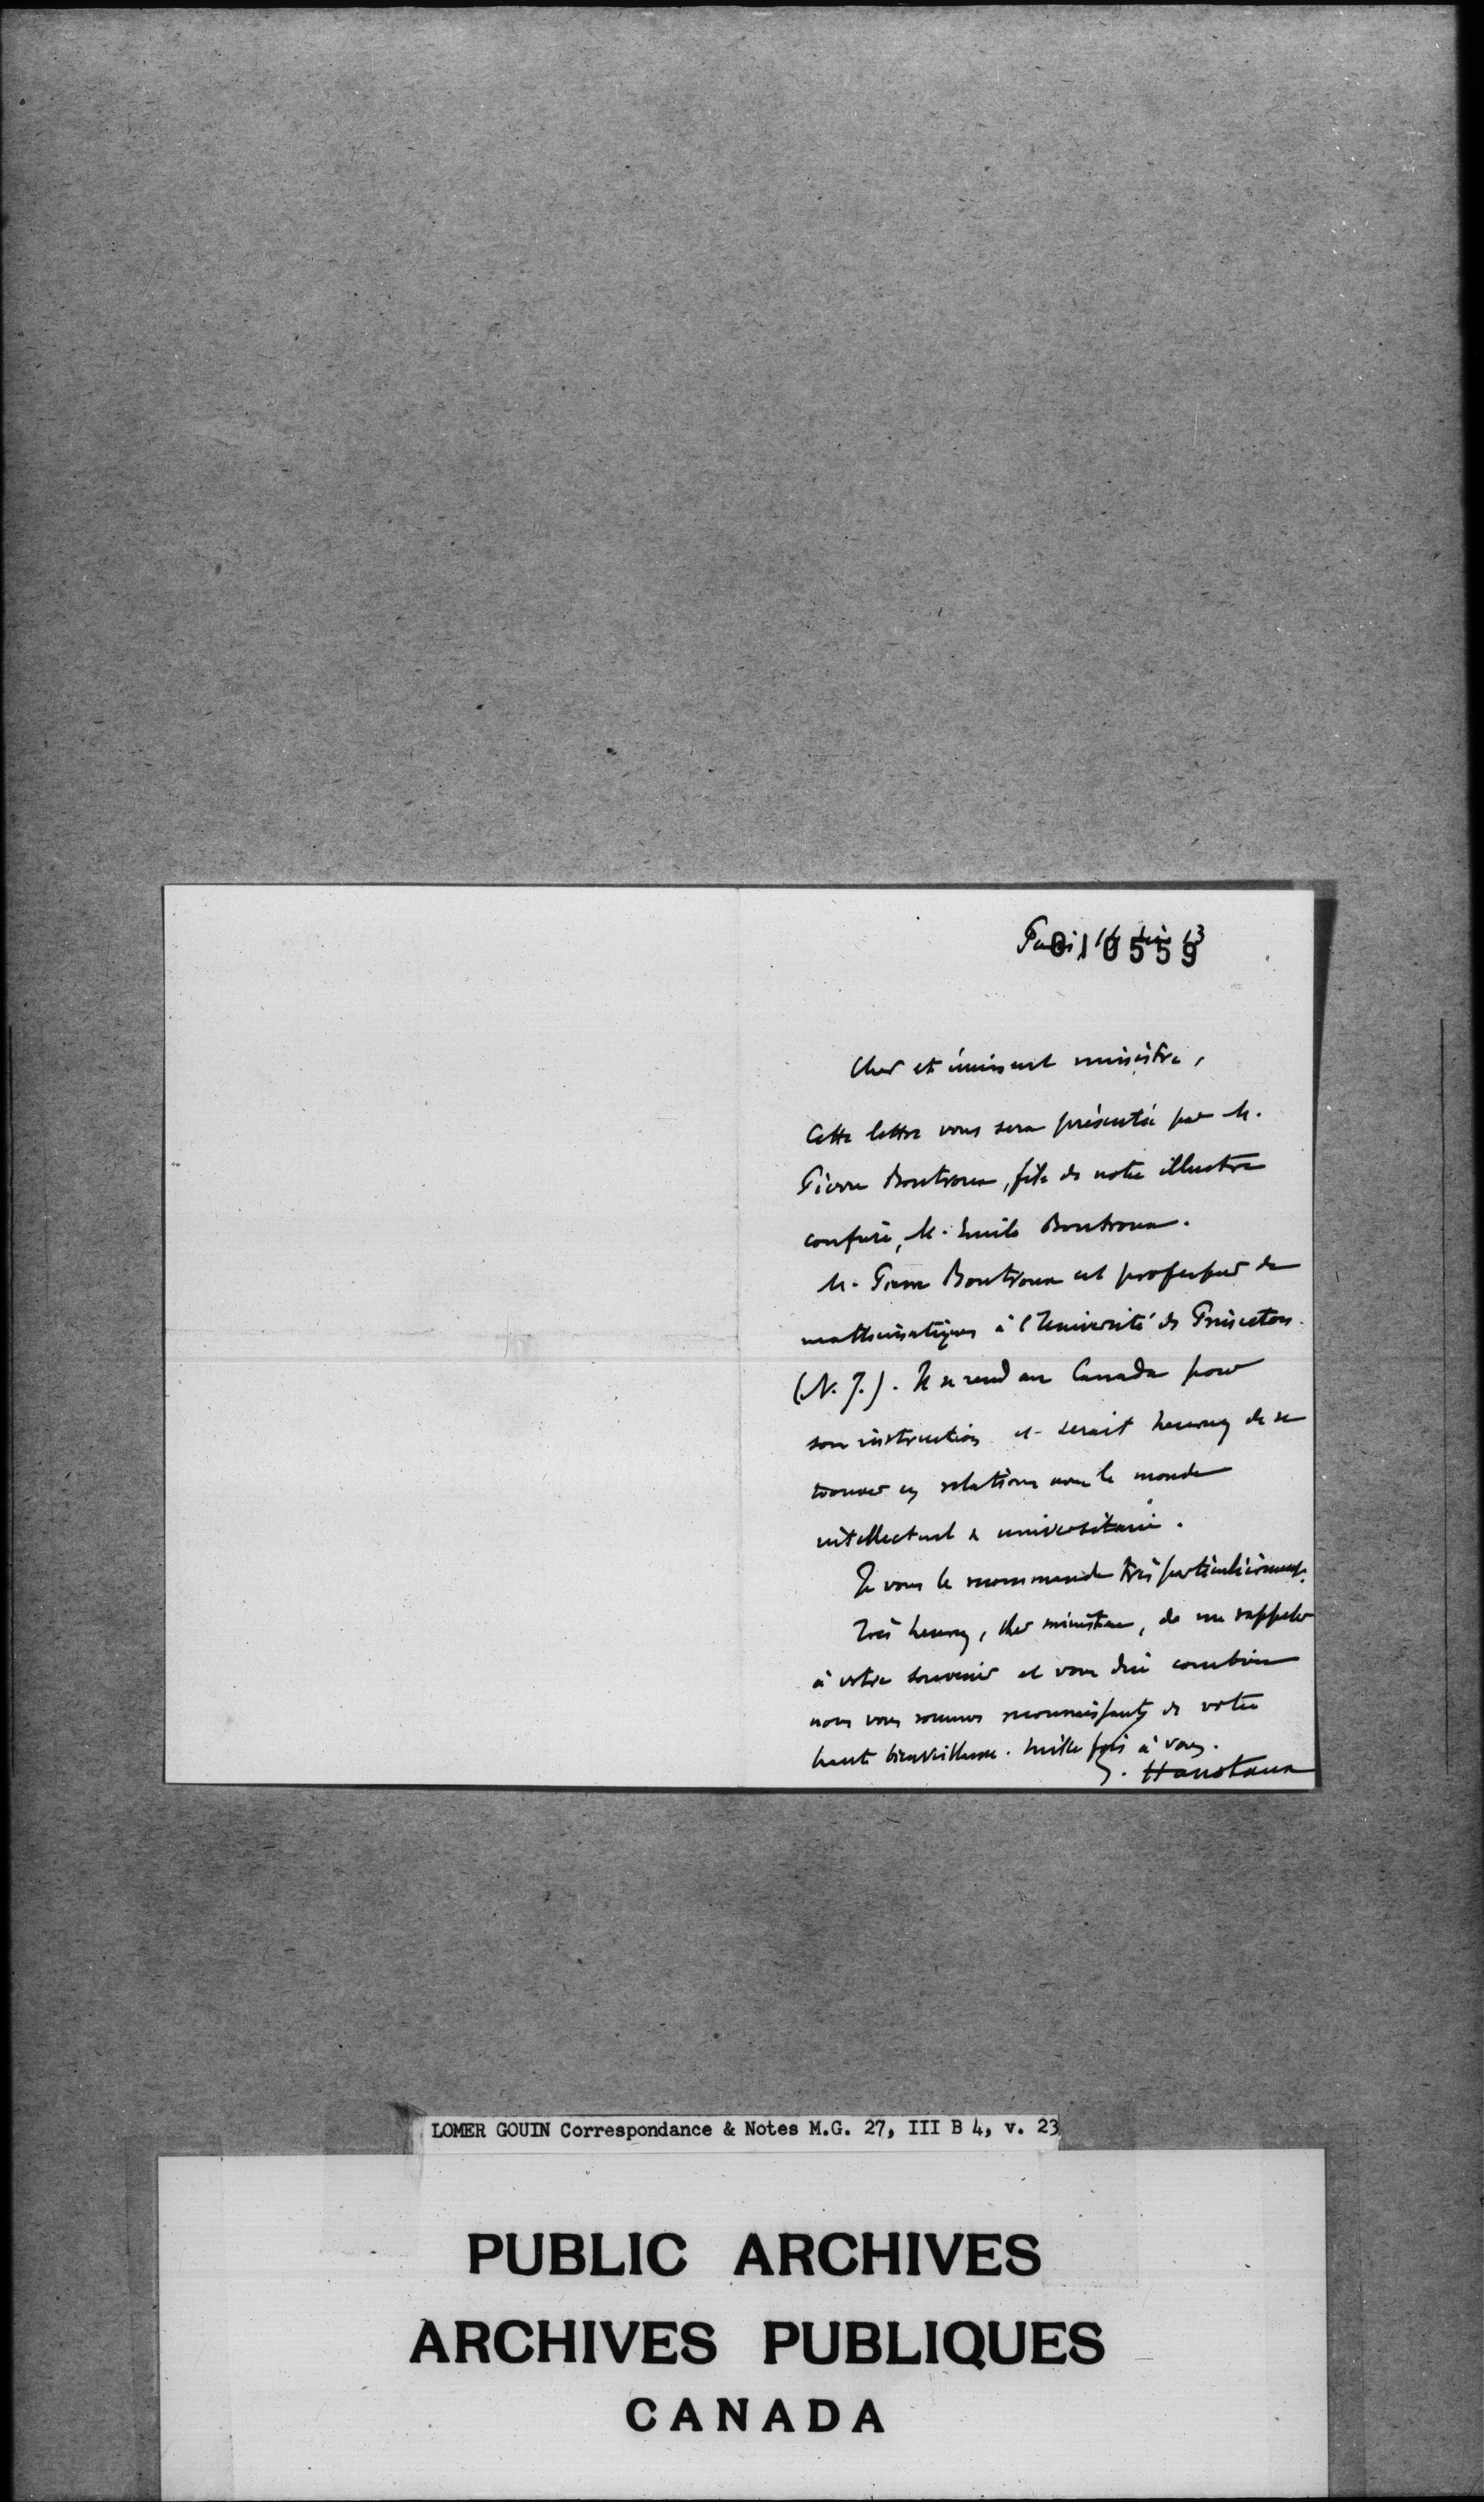 Paris, 13
010559
Cher et éminent ministre,
Cette lettre vous sera présentée par M.
Pierre Boutroux, fils de notre illustre
confrère, M. Emile Boutroux.
M. Pierre Boutroux est professeur de
mathématiques à l'Université de Princeton
(N. J.). Il se rend au Canada pour
son instruction et serait heureux de se
trouver en relations avec le monde
intellectuel & universitaire.
Je vous le recommande très particulièrement.
Très heureux, cher ministre, de me rappeler
à votre souvenir et vous dire combien
nous vous sommes reconnaissants de votre
haute bienveillance. Mille fois à vous.
G. Hanotaux
LOMER GOUIN Correspondance & Notes M.G. 27, III B 4, v. 23
PUBLIC ARCHIVES
ARCHIVES PUBLIQUES
CANADA